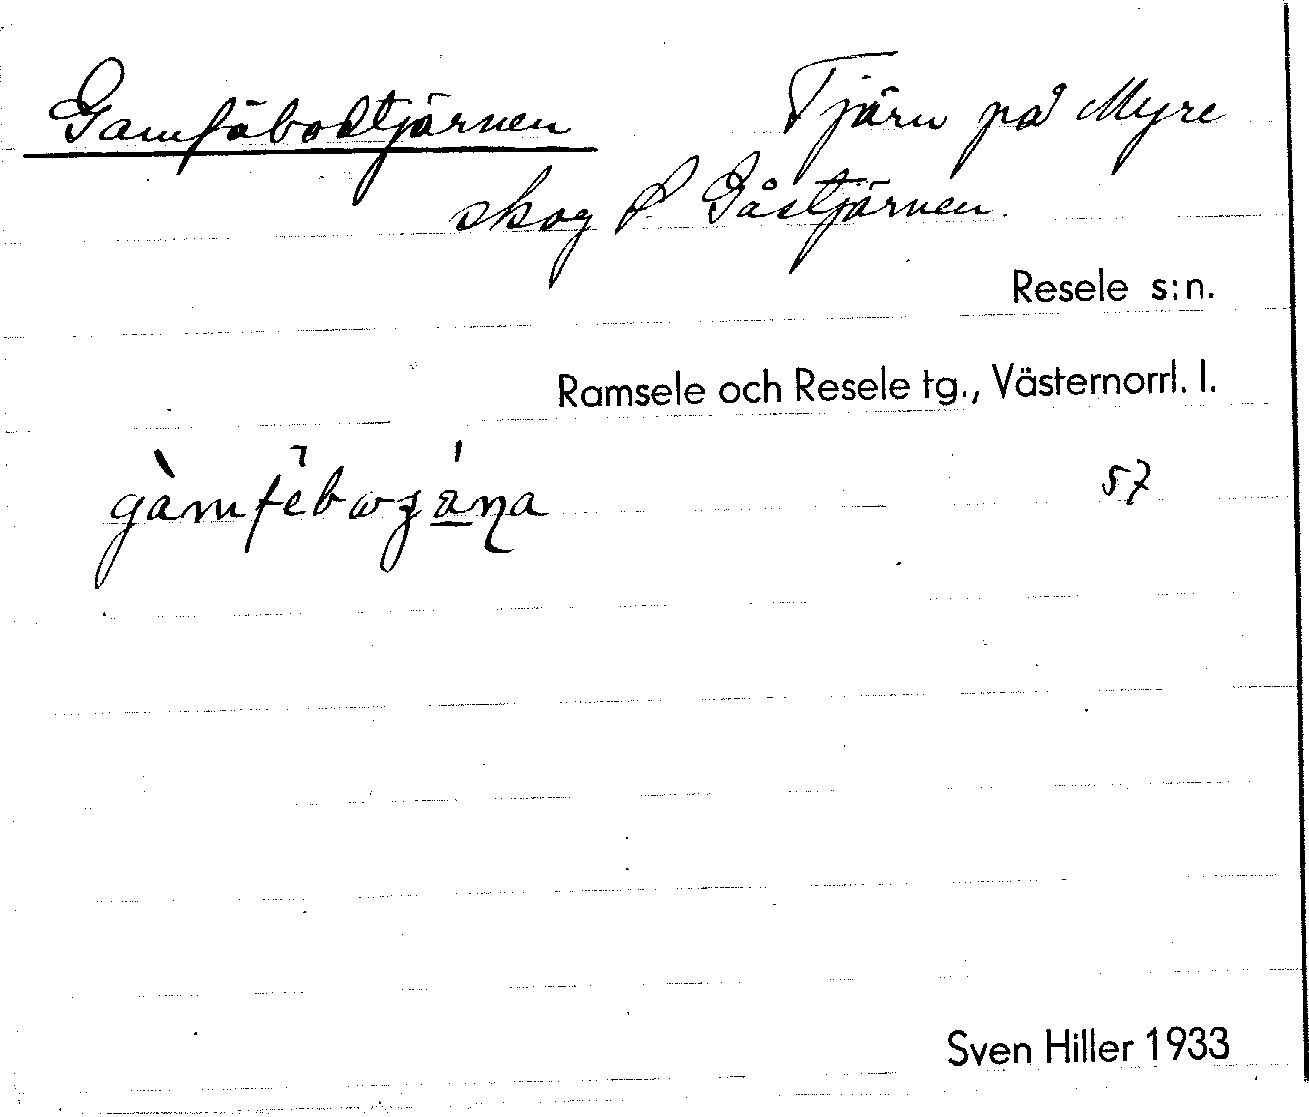 Gamfäbodtjärnen Tjärn på Myre
skog S. Gåstjärnen.
Resele s:n.
Ramsele och Resele tg., Västernorrl. l.
57
Sven Hiller 1933